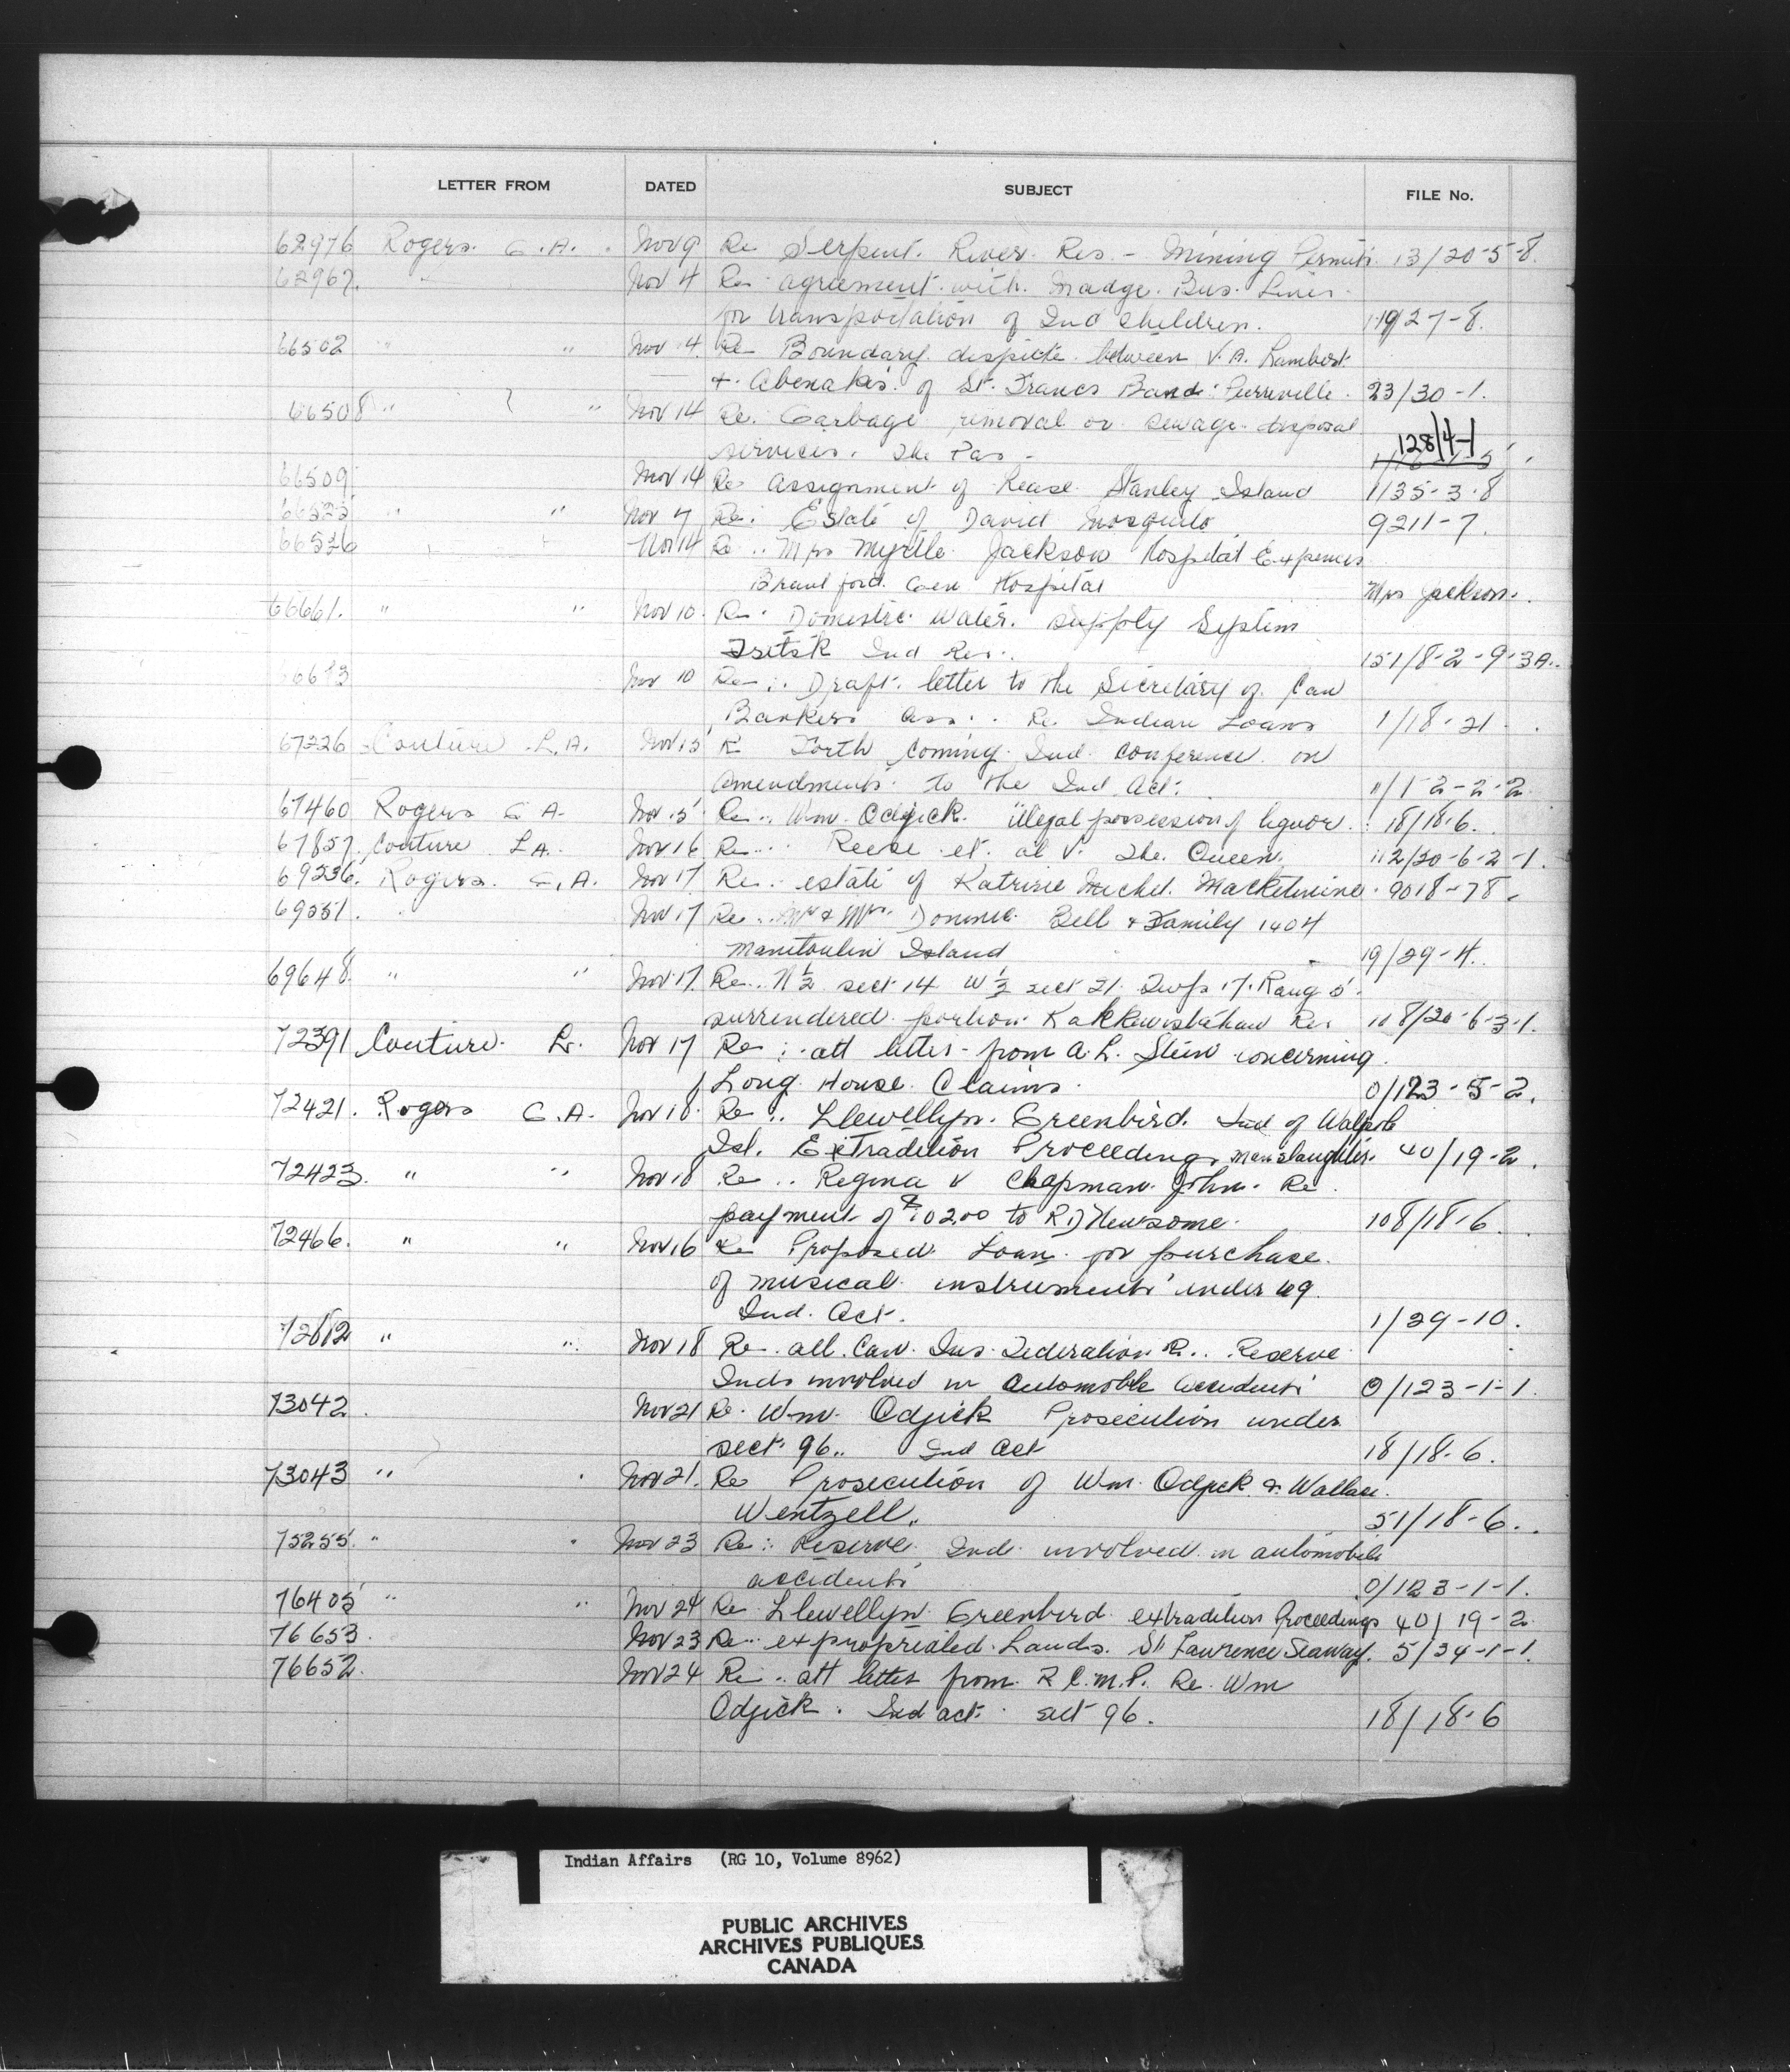 LETTER FROM DATED SUBJECT FILE No.
62976 Rogers. G. A. Nov 9 Re Serpent River Res. - Mining Permits 13/20-5-8.
62967. " Nov 4 Re agreement with Madge Bus Lines
for transportation of Ind Children. 
66502 " " Nov 4. Re Boundary dispute between V. A. Lambert
+ Abenakis of St. Francs Band: Pierreville. 23/30-1.
66508 " " Nov 14 Re. Garbage removal or sewage disposal
services. The Pas - 128/4-1
66509 Nov 14 Re assignment of Lease Stanley Island 1135-3-8
" " Nov 7 Re: Estate of David Mosquito 9211-7.
66526 Nov 14 Re .. Mrs Myrtle Jackson Hospital Expenses
Brantford Gen Hospital Mrs Jackson.
66661. " " Nov 10. Re. Domestic Water supply System
Ind Res. 151/8-2-9-3A.
Nov 10 Re.. Draft letter to the Secretary of Can
Bankers Ass.. Re Indian Loans 1/18-21.
67226 Couture L. A. Nov 15 Re Forth coming Ind Conference on
amendments to the Ind Act. 1/1-2-2-2
67460 Rogers G A. Nov 15 Re .. Wm. Odjick. illegal possession of liquor. 18/18-6.
67857. Couture L A. Nov 16 Re... Reese et. al v. The Queen. 112/20-6-2-1.
69236. Rogers. G. A. Nov 17 Re. estate of Katrine Michel 9018-78.
69551. " Nov 17 Re .. Mr & Mrs. Dominic Bell + Family 1404
Manitoulin Island 19/29-4.
69648 " " Nov 17. Re.. N ½ sect 14 W ½ sect 21. Twp 17. Rang 5.
surrendered portion Kahkewistahaw Res 108/20-6-3-1.
72391 Couture. L. Nov 17 Re : att letter from A. L. Stein concerning
Long House Claims. 0/123-5-2.
72421. Rogers G. A. Nov 18. Re .. Llewellyn. Greenbird. Ind of Walpole
Isl. Extradition Proceedings Manslaughter. 40/19-2.
72423. " " Nov 18 Re .. Regina v Chapman. John. Re
payment of $102.00 to R D Newsome. 108/18-6.
72466. " " Nov 16 Re Proposed Loan for purchase.
of musical instruments under 69.
Ind. Act. 1/29-10.
72812 " " Nov 18 Re. all. Can. Ins. Federation R.. Reserve
Inds involved in Automobile accidents 0/123-1-1.
73042. Nov 21 Re. Wm. Odjick Prosecution under
sect. 96.. Ind Act 18/18-6.
73043 " " Nov 21. Re Prosecution of Wm. Odjick & Wallace.
Wentzell. 51/18-6..
75255. " " Nov 23 Re: Reserve Ind. involved in automobile
accidents 0/123-1-1.
76405 " " Nov 24 Re Llewellyn Greenbird extradition Proceedings 40/19-2
76653. Nov 23 Re.. expropriated Lands. St Lawrence Seaway. 5/34-1-1.
76652. Nov 24 Re.. att letter from. R. C. M. P. Re. Wm
Odjick. Ind act. sect 96. 18/18-6
Indian Affairs (RG 10, Volume 8962)
PUBLIC ARCHIVES
ARCHIVES PUBLIQUES
CANADA